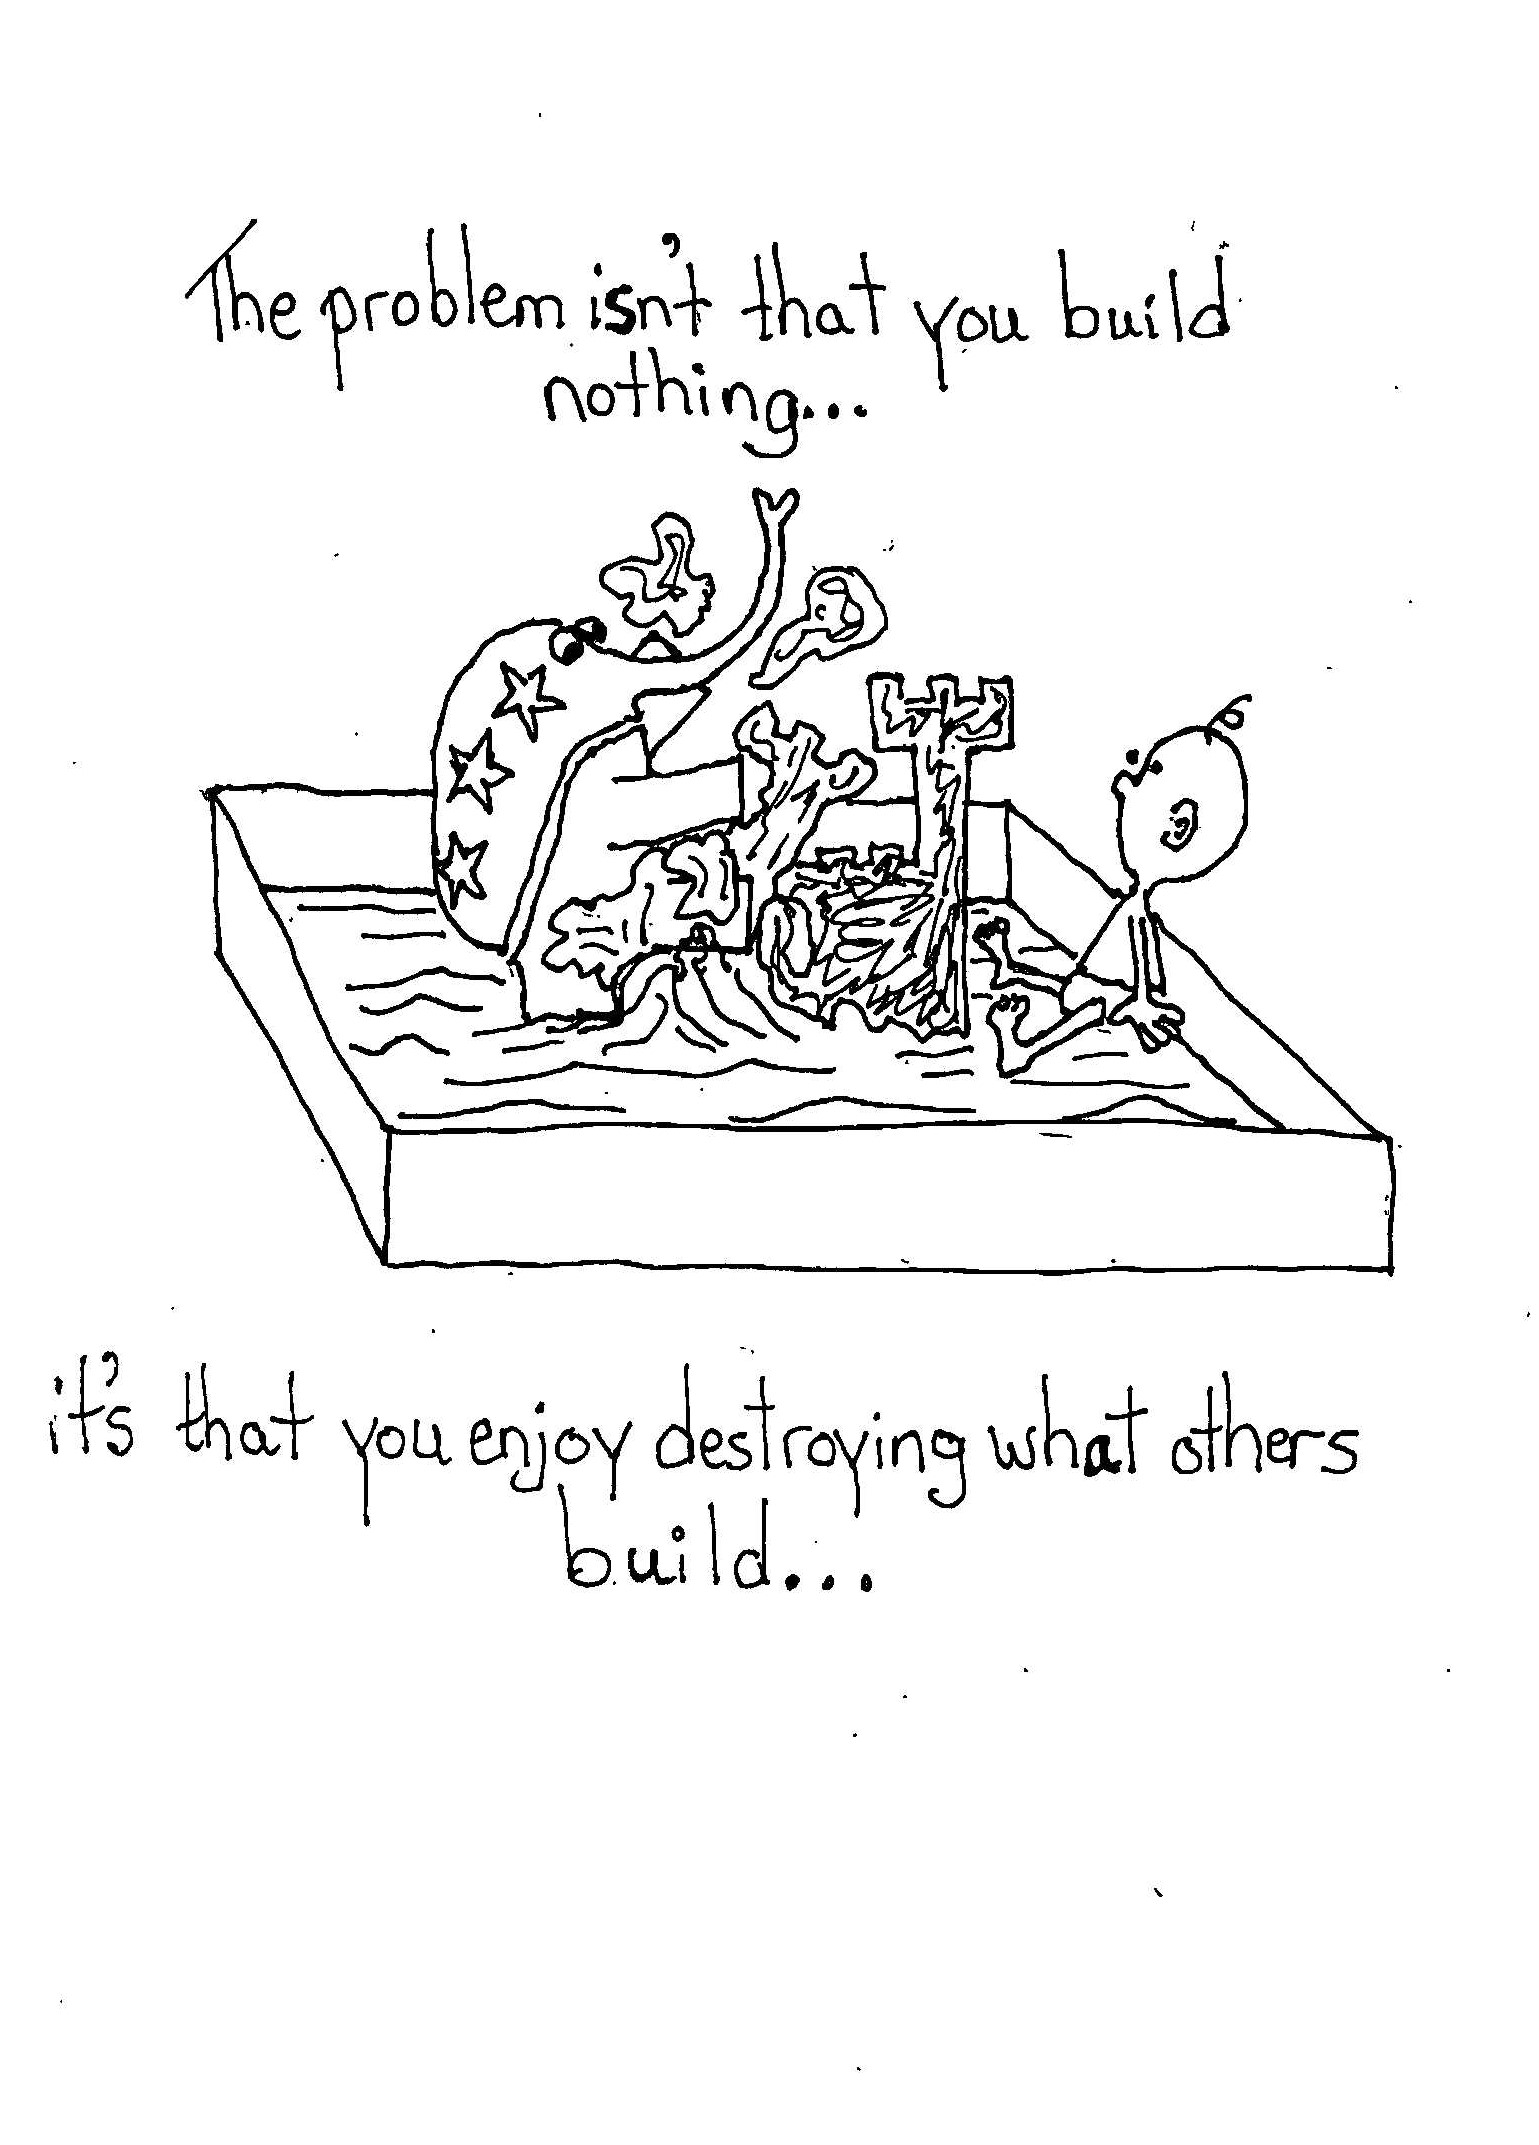 The problem isn't that you build
nothing...
it's that you enjoy destroying what others
build...